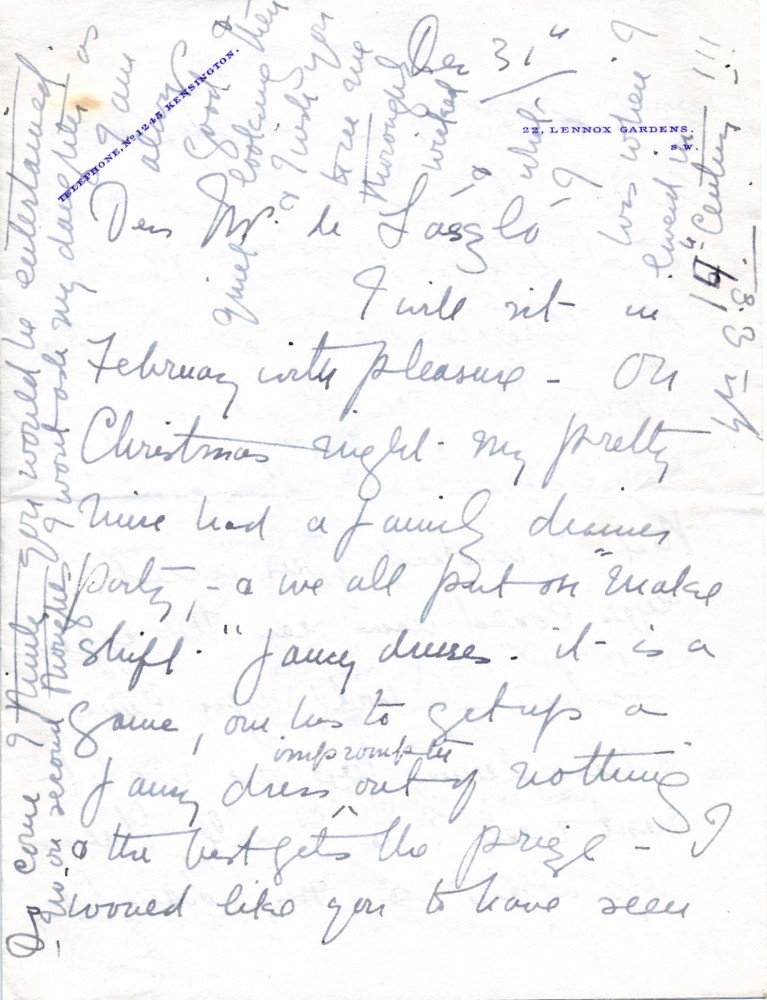 TELEPHONE, Nº 1245 KENSINGTON.
Dec 31st
22, LENNOX GARDENS.
S.W.
Dear Mr. de László
I will sit in
February with pleasure – On
Christmas night my pretty
niece had a family dinner
party, – & we all put on "make
shift" fancy dresses. it is a
game, one has to get up a
fancy dress impromptu out of nothing
& the best gets the prize – I
would like you to have seen
Do come I think you would be entertained
– no on second thoughts I wont ask my daughters as
I am
always
good
quiet looking then
& I wish you
to see me
thoroughly
wicked
& what
I was when I
lived in
14th Century – !!!